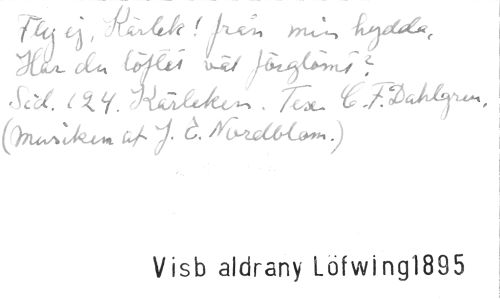 Fly ej, Kärlek! från min hydda,
Har du löftet väl förglömt?
Sid. 124. Kärleken. Tex. C. F. Dahlgren.
(Musiken af J. E. Nordblom.)
Visb aldrany Löfwing1895